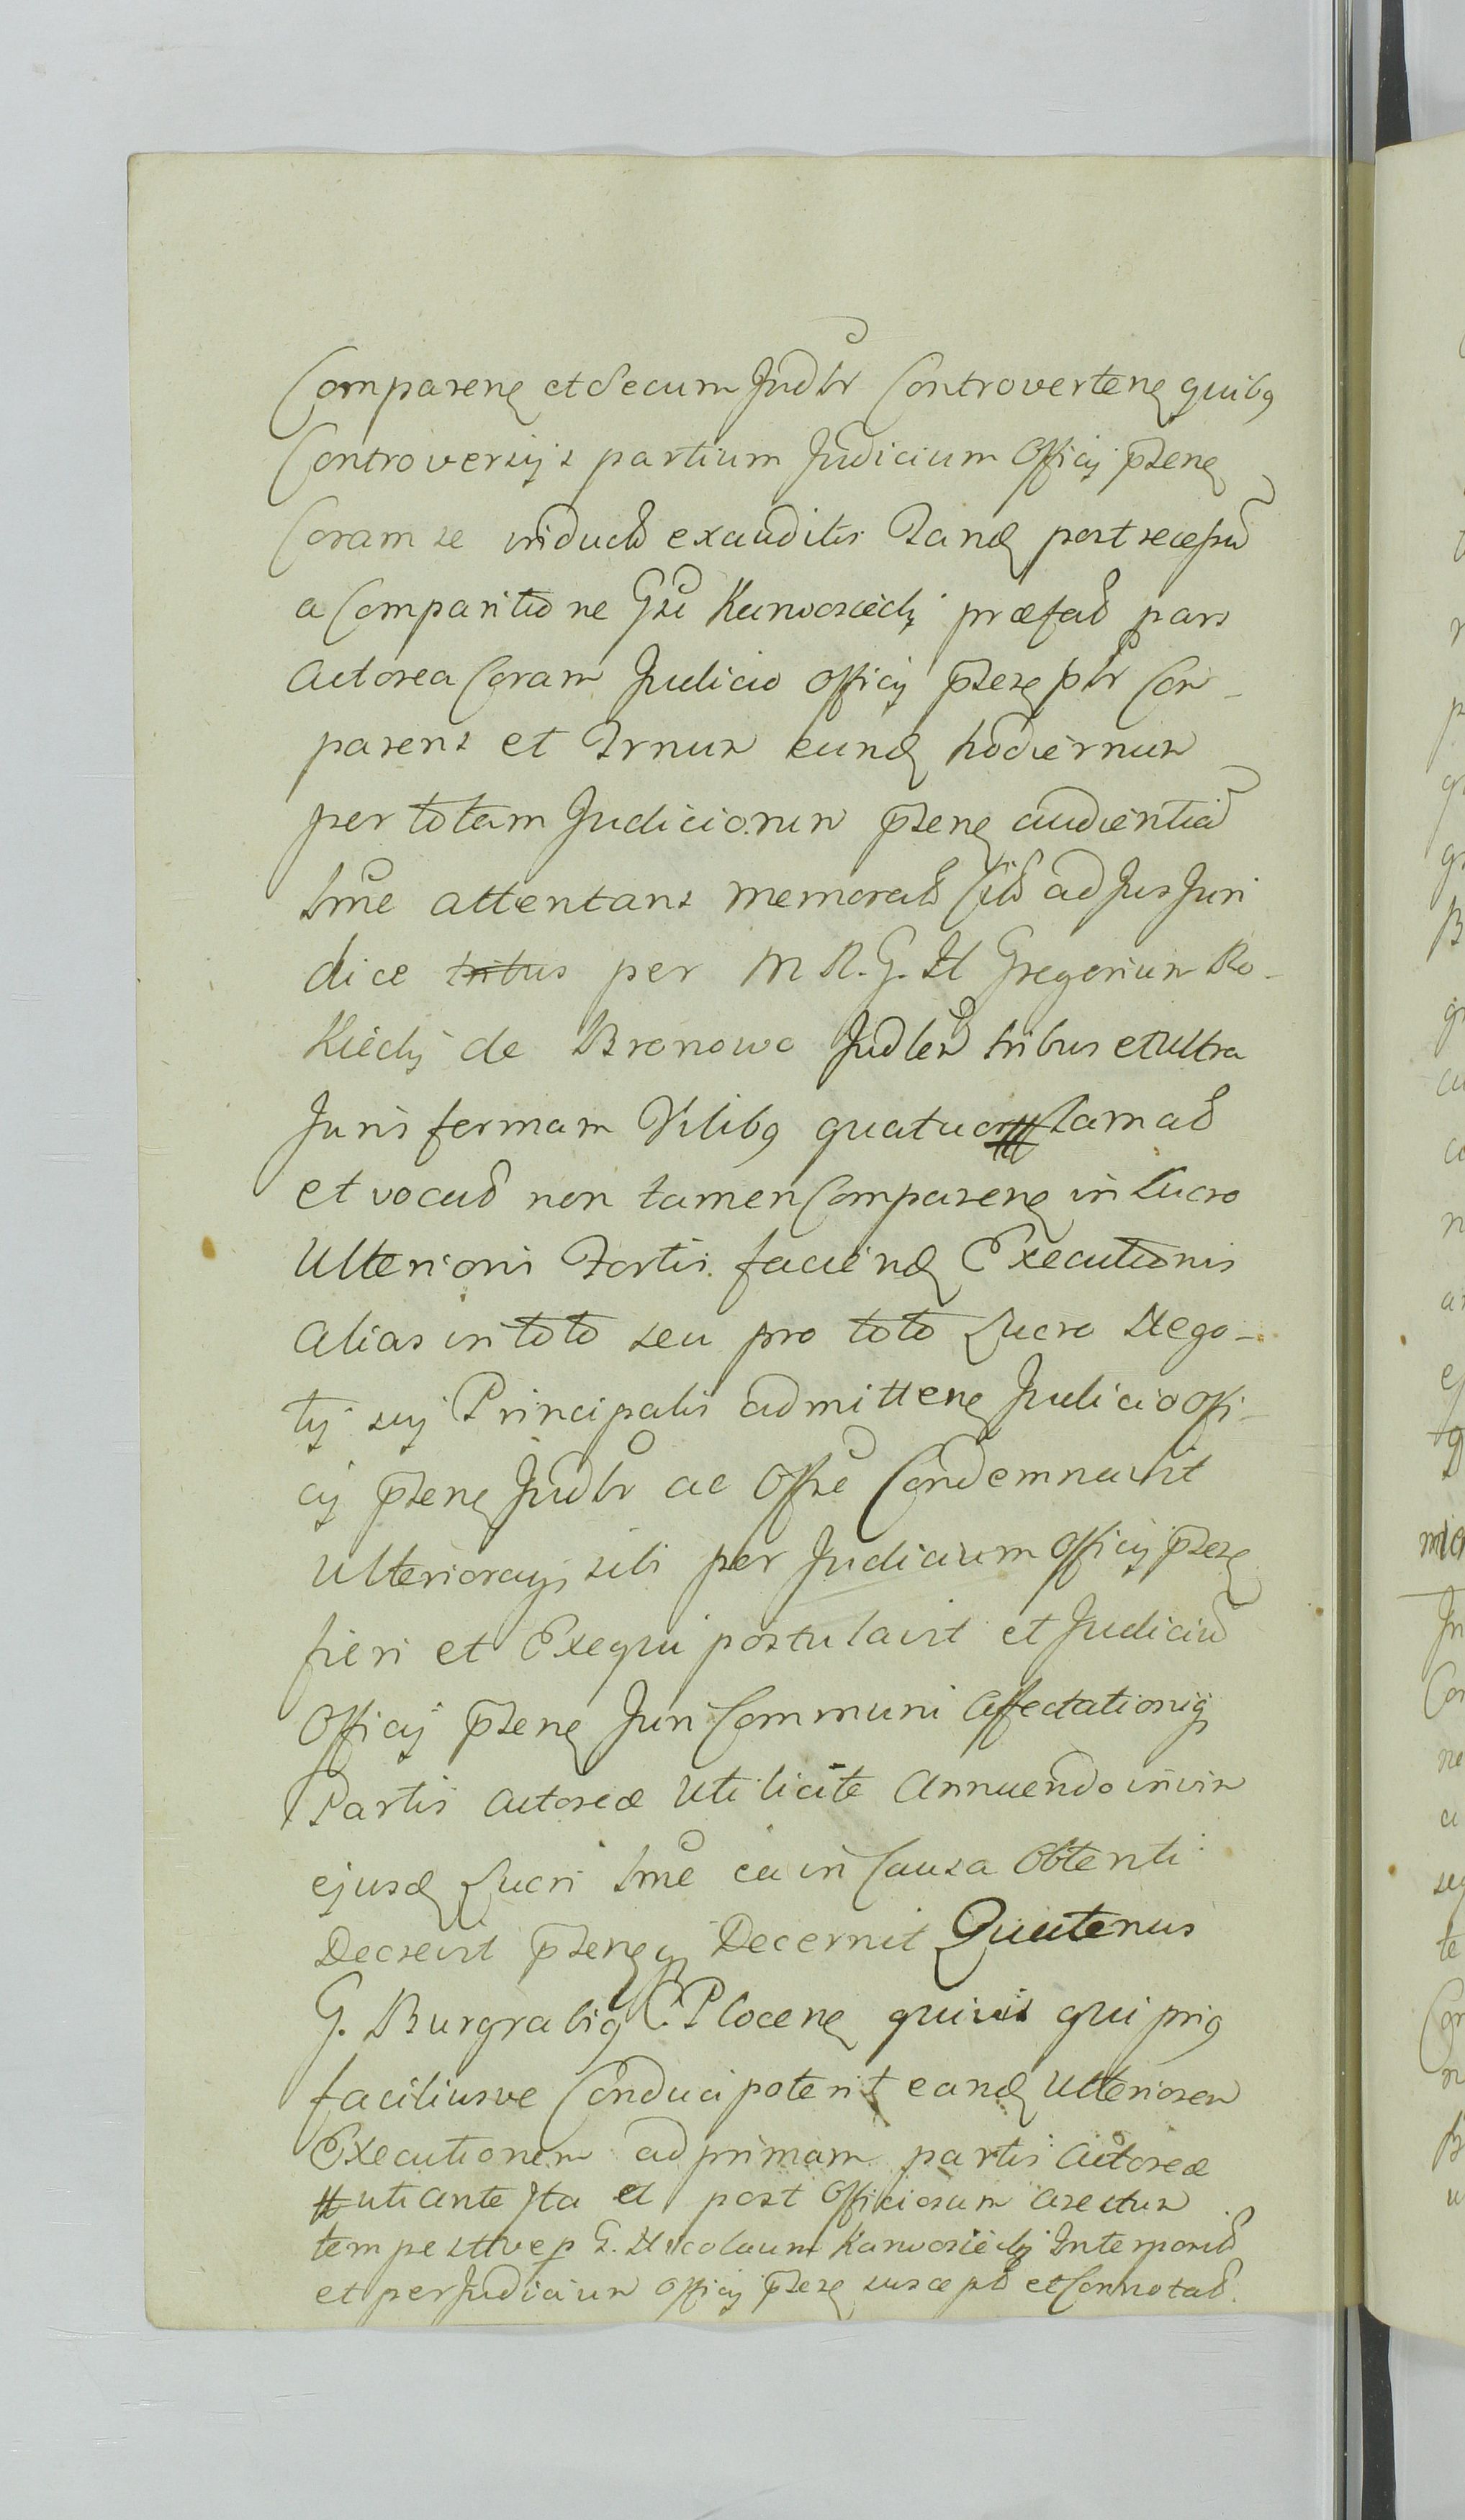 Comparenq et Secum Judlr Controvertenq quibq
Controversijs partium Judicium Officij pseng
Coram se inductd exauditis Tandq post recessu
a Comparitione Gsi Karwosiecki præfatd pars
Actorea Coram Judicio officij psesq plr Com-
parens et Trnum eundq hodiernum
per totam Judiciorum pseng audientiad
Lme attentans memoratd Citd ad Jus Juri
dice tribus per M R. G. N Gregorium Ro-
kicki de Bronowo Judlem tribus et ultra
Juris formam Vicibq quatuor clamatd
et vocatd non tamen Comparenq in Lucro
Ulterioris Fortis faciendq Executionis
alias in toto seu pro toto Lucro Nego-
tij sui Principalis admittenq Judicio offi-
cij pseng Judlr ac Offse Condemnavit
Ulterioraq sibi per Judicium officij psesq
fieri et Exequi postulavit et Judiciu
Officij pseng Juri Communi affectationiq
Partis Actoreæ Uti licite Annuendo in vim
ejusdq Lucri Lme ea in Causa Obtenti
Decrevit psengq Decernit Quatenus
G. Burgrabiq C. Plocenq quivis qui priq
faciliusve Conduci poterit eandq Ulteriorem
Executionem ad primam partis Actoreæ
uti ante Ita et post Officiosum arestum
tempestive p G. Nicolaum Karwosiecki Interpositd
et per Judicium officij psesq susceptd et Connotatd.